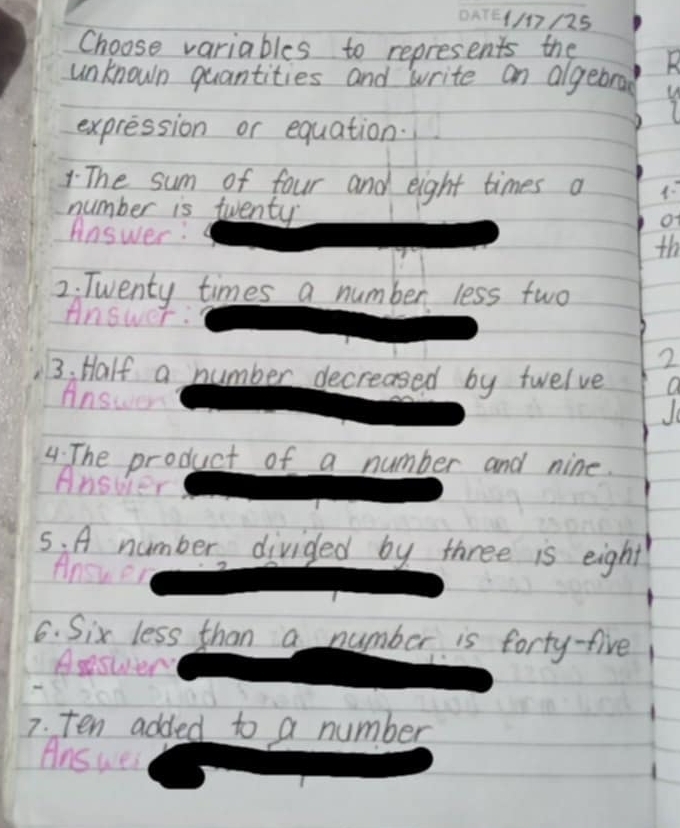 DATE 1/17/25
Choose variables to represents the
unknown quantities and write an algebraic
expression or equation.
1. The sum of four and eight times a
number is twenty
Answer:
2. Twenty times a number less two
Answer:
3. Half a number decreased by twelve
Answer
4. The product of a number and nine.
Answer
5. A number divided by three is eight
Answer
6. Six less than a number is forty-five
Aseswer
7. Ten added to a number
Answer